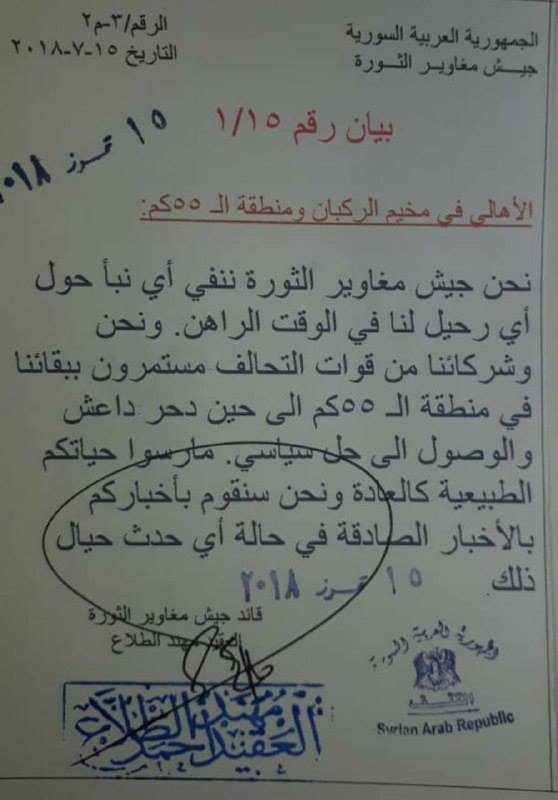 الجمهورية العربية السورية
جيش مغاوير الثورة
الرقم/٣-م٢
التاريخ ١٥-٧-٢٠١٨
بيان رقم ١/١٥
١٥ تموز ٢٠١٨
الأهالي في مخيم الركبان ومنطقة الـ ٥٥كم:
نحن جيش مغاوير الثورة ننفي أي نبأ حول
أي رحيل لنا في الوقت الراهن. ونحن
وشركائنا من قوات التحالف مستمرون ببقائنا
في منطقة الـ ٥٥كم الى حين دحر داعش
والوصول الى حل سياسي. مارسوا حياتكم
الطبيعية كالعادة ونحن سنقوم بأخباركم
بالأخبار الصادقة في حالة أي حدث حيال
ذلك.
١٥ تموز ٢٠١٨
قائد جيش مغاوير الثورة
العقيد مهند الطلاع
مهند الطلاع
العقيد احمد
الجمهورية العربية السورية
Syrian Arab Republic